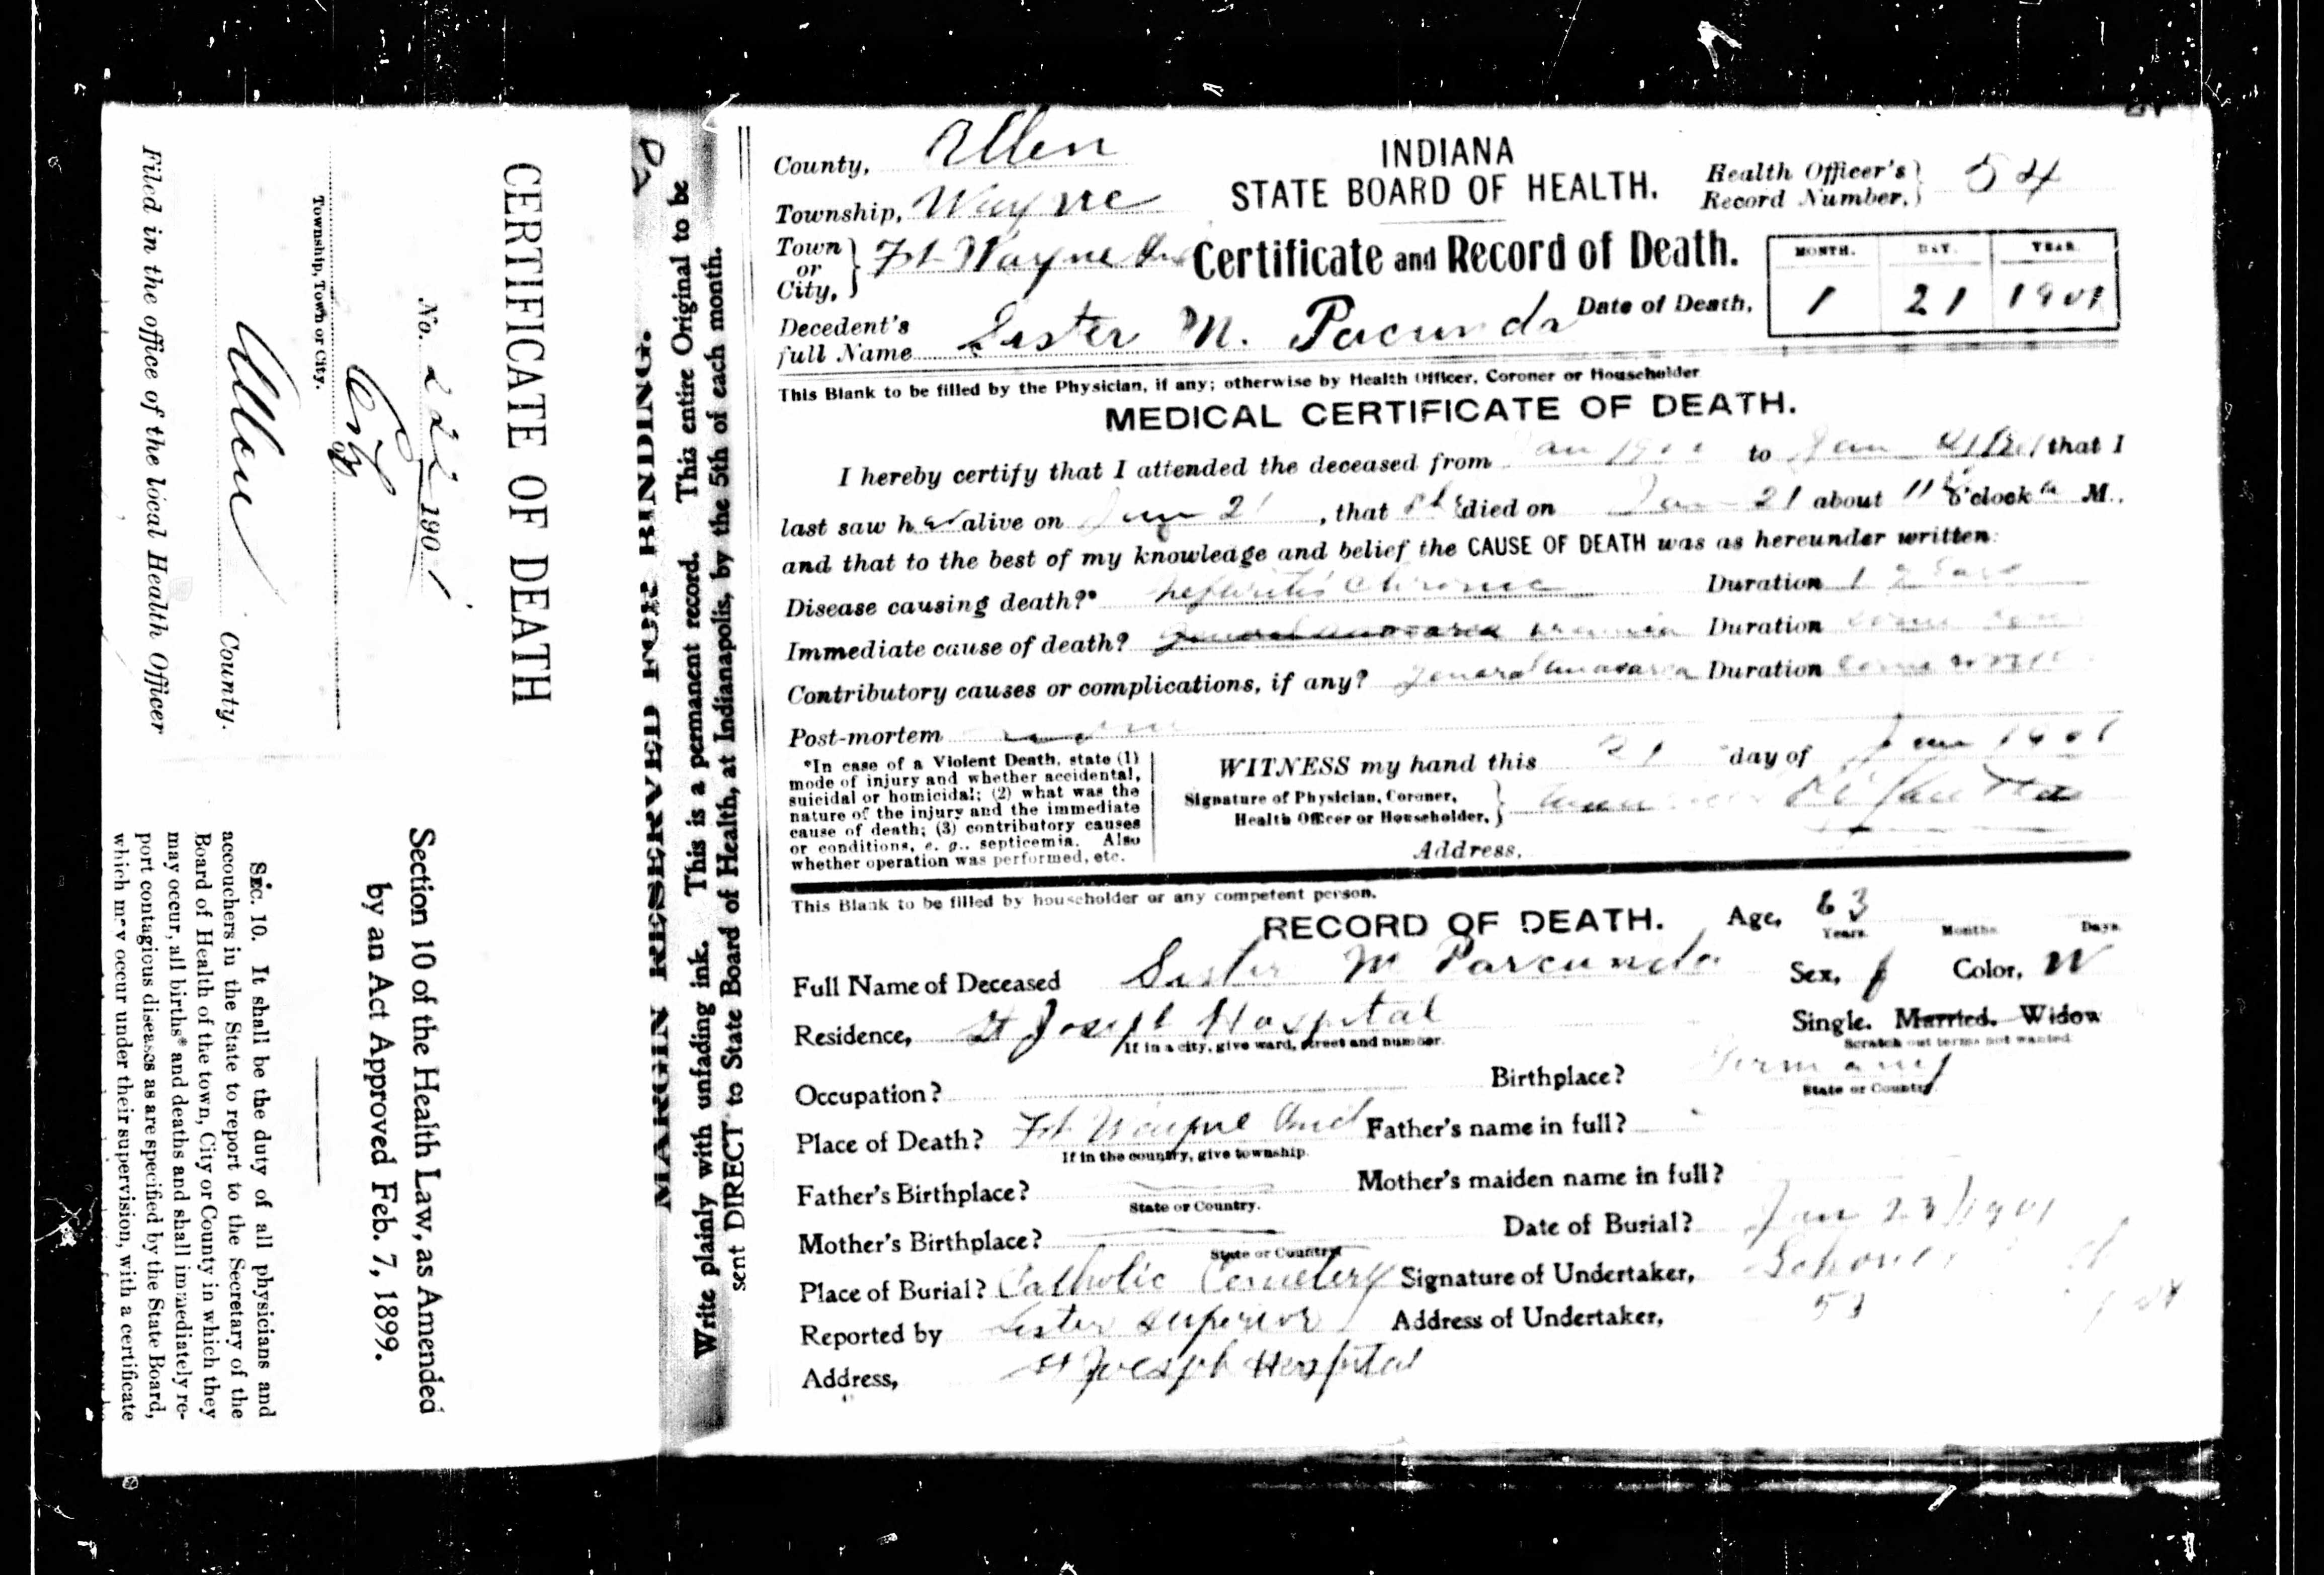 CERTIFICATE OF DEATH
No. 222 1901
City
Township, Town or City.
Allen County.
Filed in the office of the local Health Officer
Section 10 of the Health Law, as Amended
by an Act Approved Feb. 7, 1899.
SEC. 10. It shall be the duty of all physicians and
accouchers in the State to report to the Secretary of the
Board of Health of the town, City or County in which they
may occur, all births* and deaths and shall immediately re-
port contagious diseases as are specified by the State Board,
which may occur under their supervision, with a certificate
MARGIN RESERVED FOR BINDING.
Write plainly with unfading ink. This is a permanent record. This entire Original to be
sent DIRECT to State Board of Health, at Indianapolis, by the 5th of each month.
County, Allen
INDIANA
STATE BOARD OF HEALTH.
Health Officer's
Record Number, 54
Township, Wayne
Town
or
City, Ft Wayne Ind
Certificate and Record of Death.
Decedent's
full Name Sister M. Pacunda
Date of Death,
MONTH. DAY. YEAR
1 21 1901
This Blank to be filled by the Physician, if any; otherwise by Health Officer, Coroner or Householder
MEDICAL CERTIFICATE OF DEATH.
I hereby certify that I attended the deceased from to Jan that I
last saw her alive on 21, that she died on Jan 21 about 11 o'clock a M.,
and that to the best of my knowledge and belief the CAUSE OF DEATH was as hereunder written:
Disease causing death?* Nefuritis Chronic Duration 1
Immediate cause of death? General anasarca uremia Duration
Contributory causes or complications, if any? General anasarca Duration
Post-mortem
*In case of a Violent Death, state (1)
mode of injury and whether accidental,
suicidal or homicidal; (2) what was the
nature of the injury and the immediate
cause of death; (3) contributory causes
or conditions, e. g., septicemia. Also
whether operation was performed, etc.
WITNESS my hand this 21 day of Jan 1901
Signature of Physician, Coroner,
Health Officer or Householder,
Address,
This Blank to be filled by householder or any competent person.
RECORD OF DEATH.
Age, 63
Years Months Days
Full Name of Deceased Sister M Parcunda
Sex, f Color, W
Residence, St Joseph Hospital
If in a city, give ward, street and number.
Single. Married. Widow
Scratch out terms not wanted
Occupation?
Birthplace? Germany
State or Country
Place of Death? Ft Wayne Ind
If in the country, give township.
Father's name in full?
Father's Birthplace?
State or Country.
Mother's maiden name in full?
Mother's Birthplace?
State or Country
Date of Burial? Jan 23/1901
Place of Burial? Catholic Cemetery
Signature of Undertaker,
Reported by Sister Superior
Address of Undertaker,
Address, St Joesph Hospital